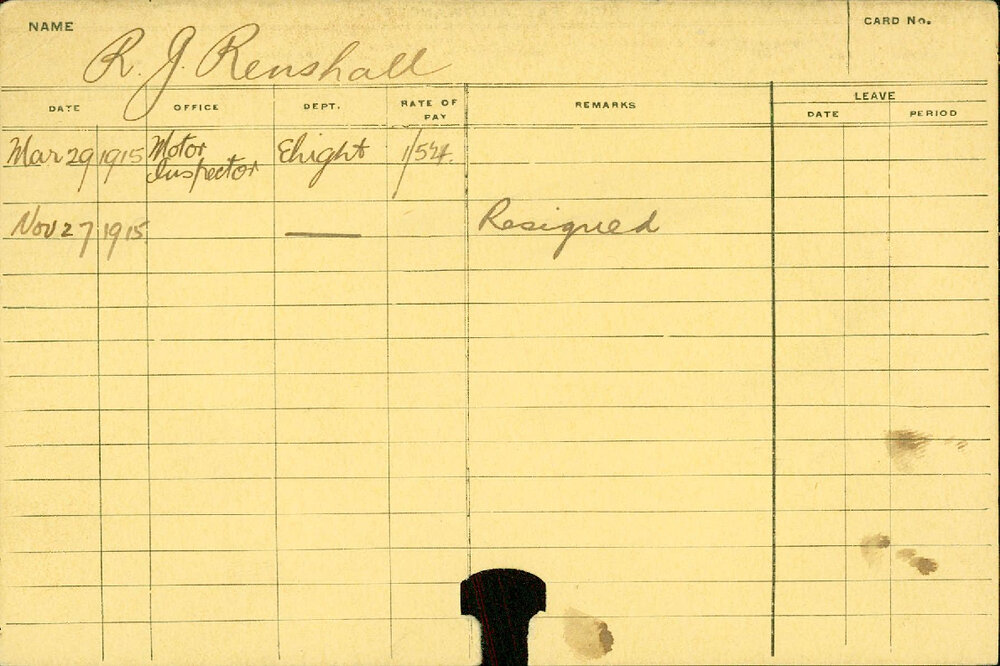 NAME
CARD No.
R. J. Renshall
DATE OFFICE DEPT. RATE OF PAY REMARKS LEAVE
DATE PERIOD
Mar 29 1915 Motor Inspector Elight
Nov 27 1915 — Resigned